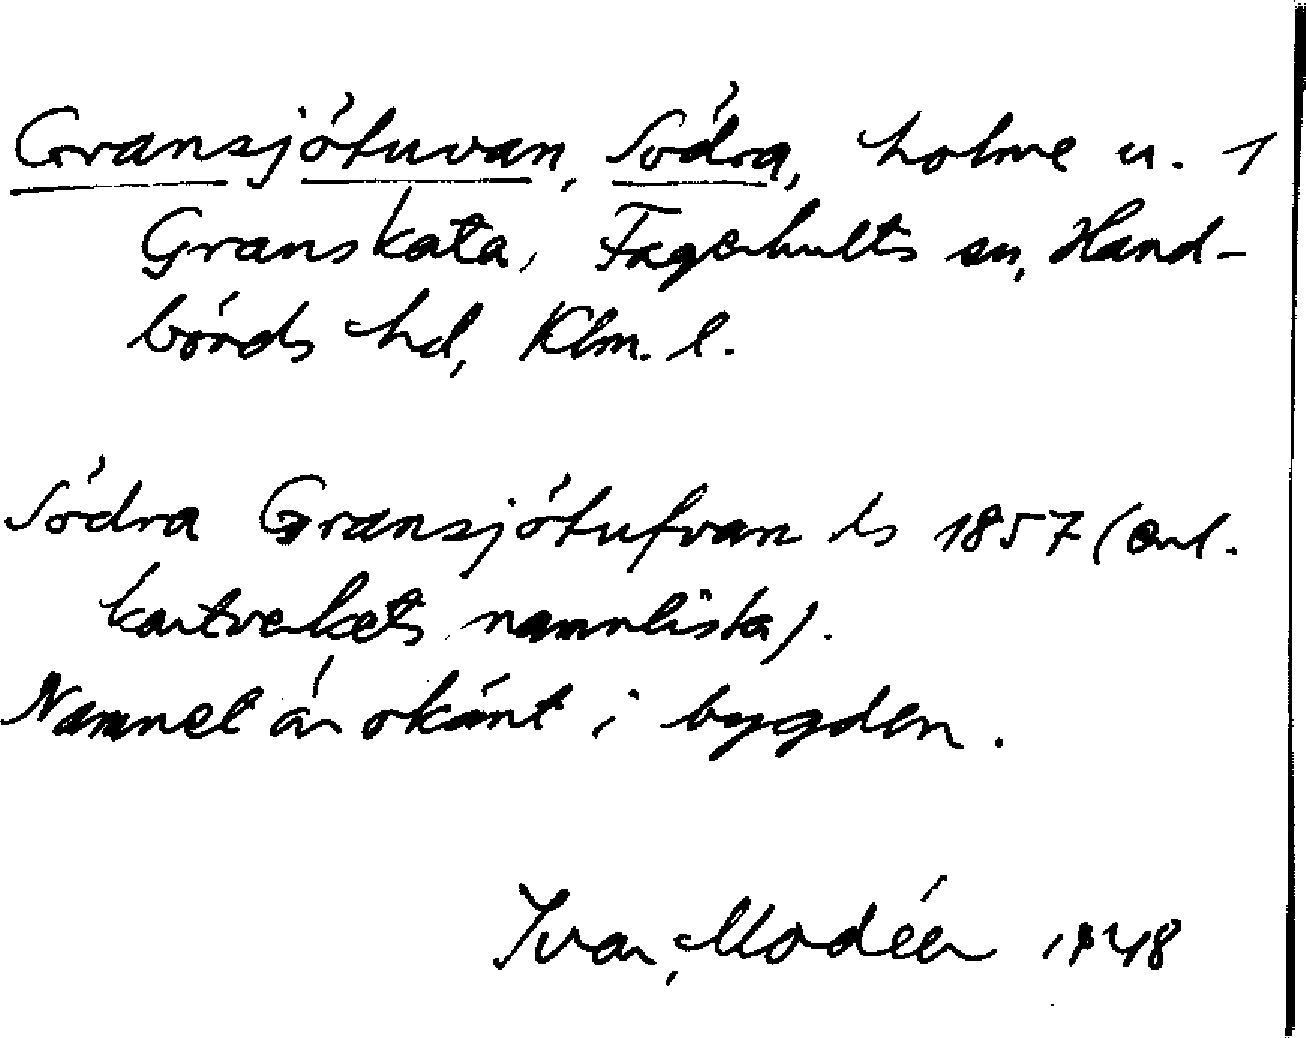 Gransjötuvan, Södra, holme u. 1
Granskata, Fagerhults sn, Hand-
börds hd, Klm. l.
Södra Gransjötufvan ds 1857 (enl.
kartverkets namnlista).
Namnet är okänt i bygden.
Ivar Modéer 1948